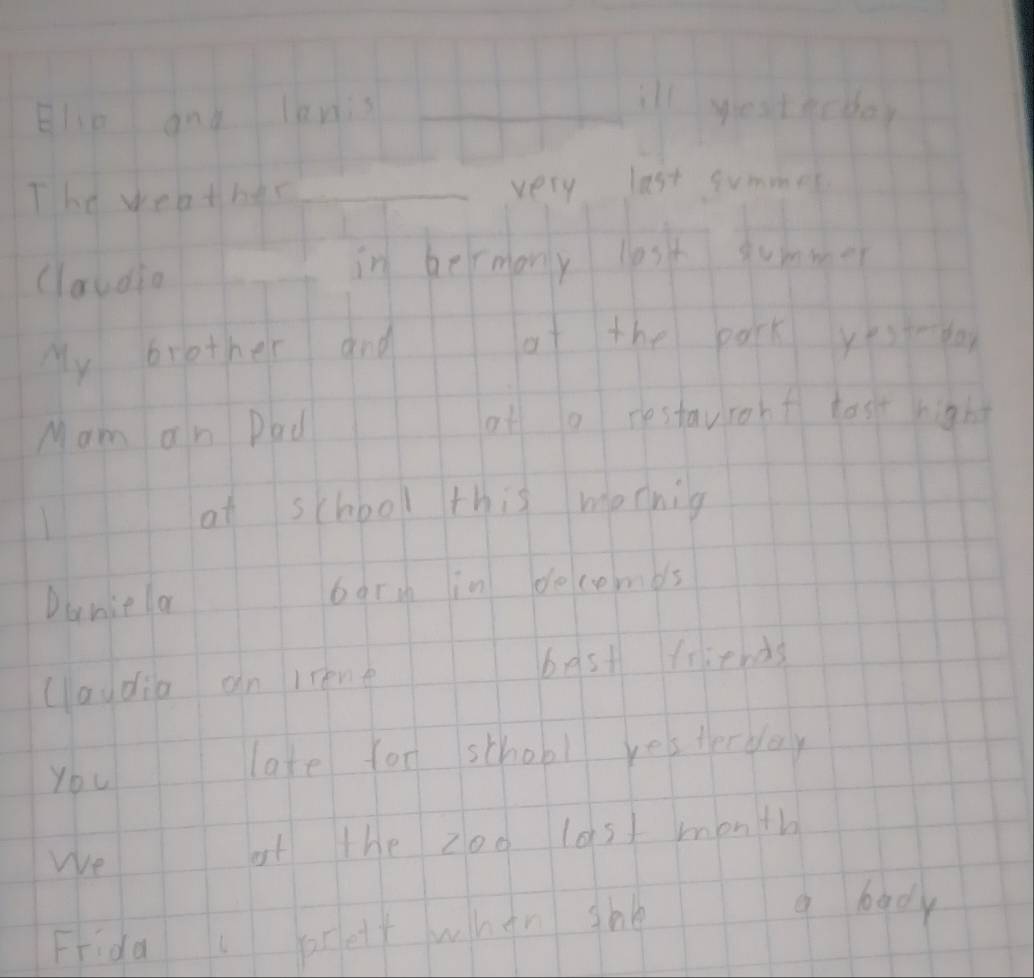 Elio and Ianis ill yesterday
The weather very last summer
Claudia in bermany last summer
My brother and at the park yesterday
Mam an Dad at a restaurant last night
I at school this mornig
Daniela born in
Claudia an irene best friends
You late for school yesterday
We at the zoo last month
Frida prett when she a body